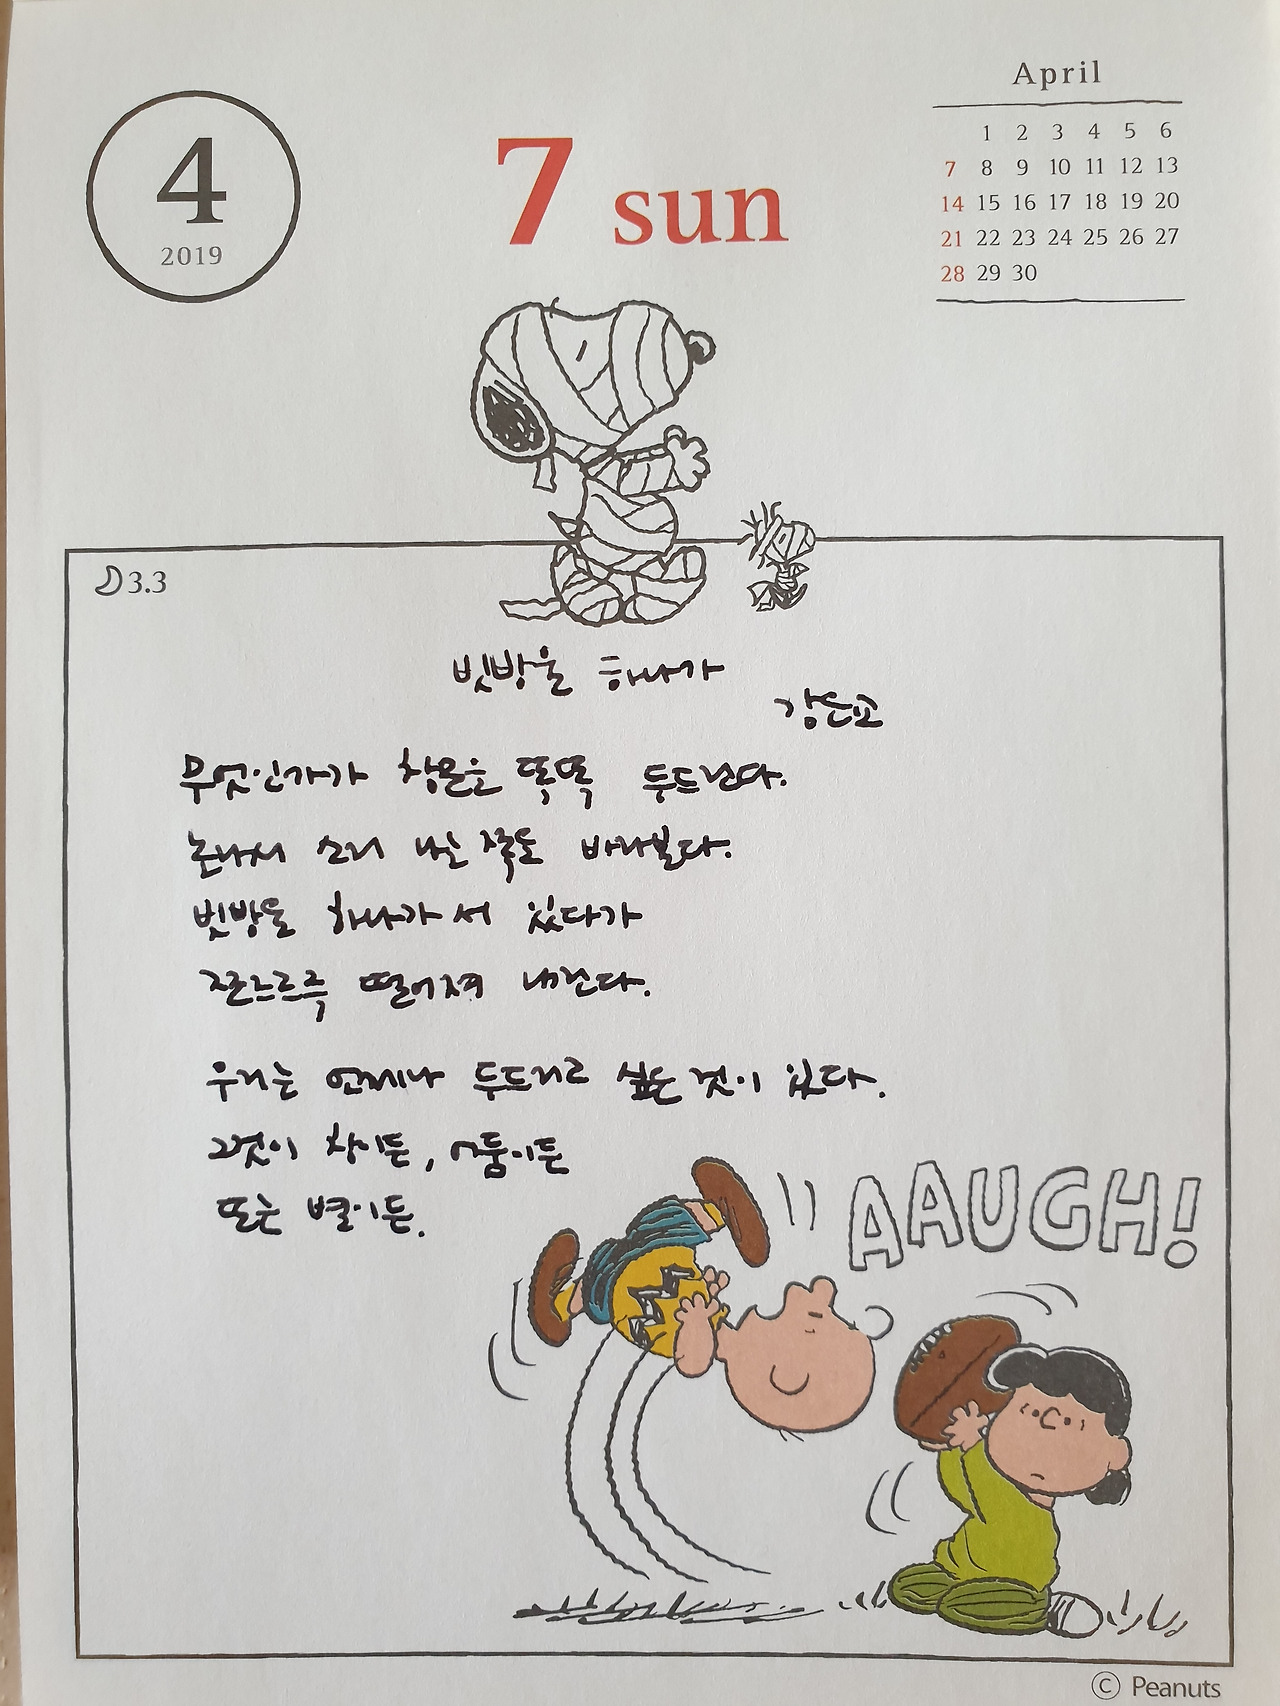 4
2019
7 sun
April
1 2 3 4 5 6
7 8 9 10 11 12 13
14 15 16 17 18 19 20
21 22 23 24 25 26 27
28 29 30
3.3
빗방울 하나가
강은교
무엇인가가 창문을 똑똑 두드린다.
놀라서 소리 나는 쪽을 바라본다.
빗방울 하나가 서 있다가
쪼르르륵 떨어져 내린다.
우리는 언제나 두드리고 싶은 것이 있다.
그것이 창이든, 어둠이든
또는 별이든.
AAUGH!
© Peanuts